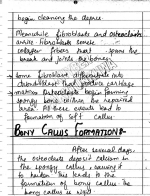 begin cleaning the degree.
Meanwhile fibroblasts and osteoblasts
while fibroblasts
collagen fibers that span the
break and joints the bones.
→ Some fibroblast differentiate into
chondroblast that produce cartilage
osteoblasts begin forming
spongy bone within the repaired
area. All these events lead to
formation of soft callus
BONY CALLUS FORMATION:-
After several days,
the osteoblast deposit calcium in
the spongy callus, causing it
to harden. This leads to the
formation of bony callus. The
bony callus is